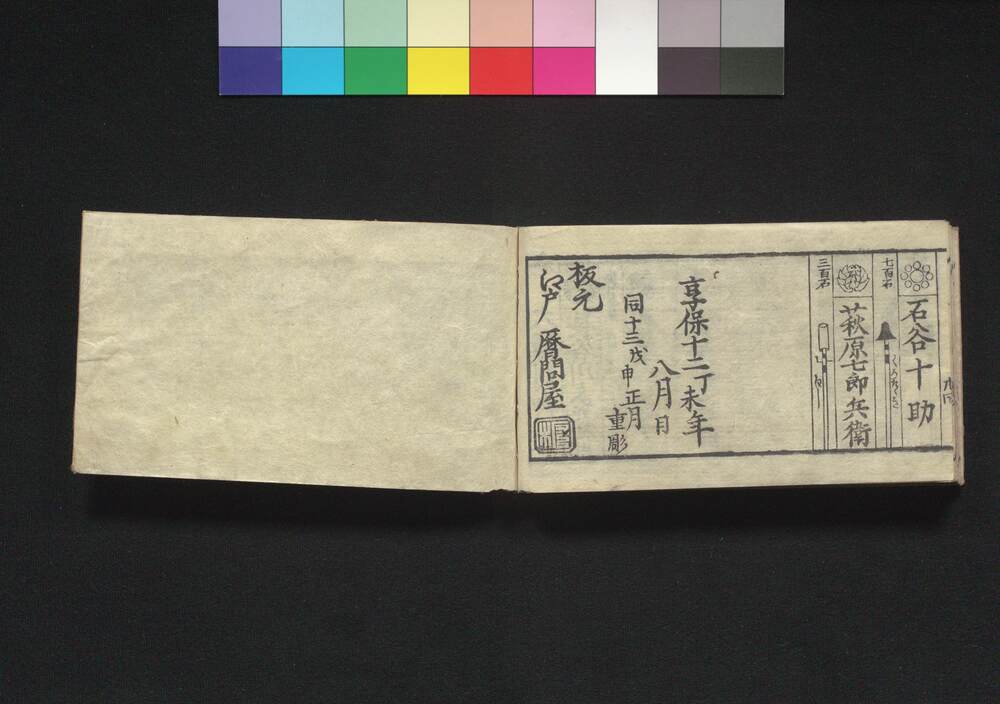 石谷十助
七百石
萩原七郎兵衛
三百石
享保十二丁未年
八月日
同十三戊申正月
重彫
板元
江戸
暦問屋